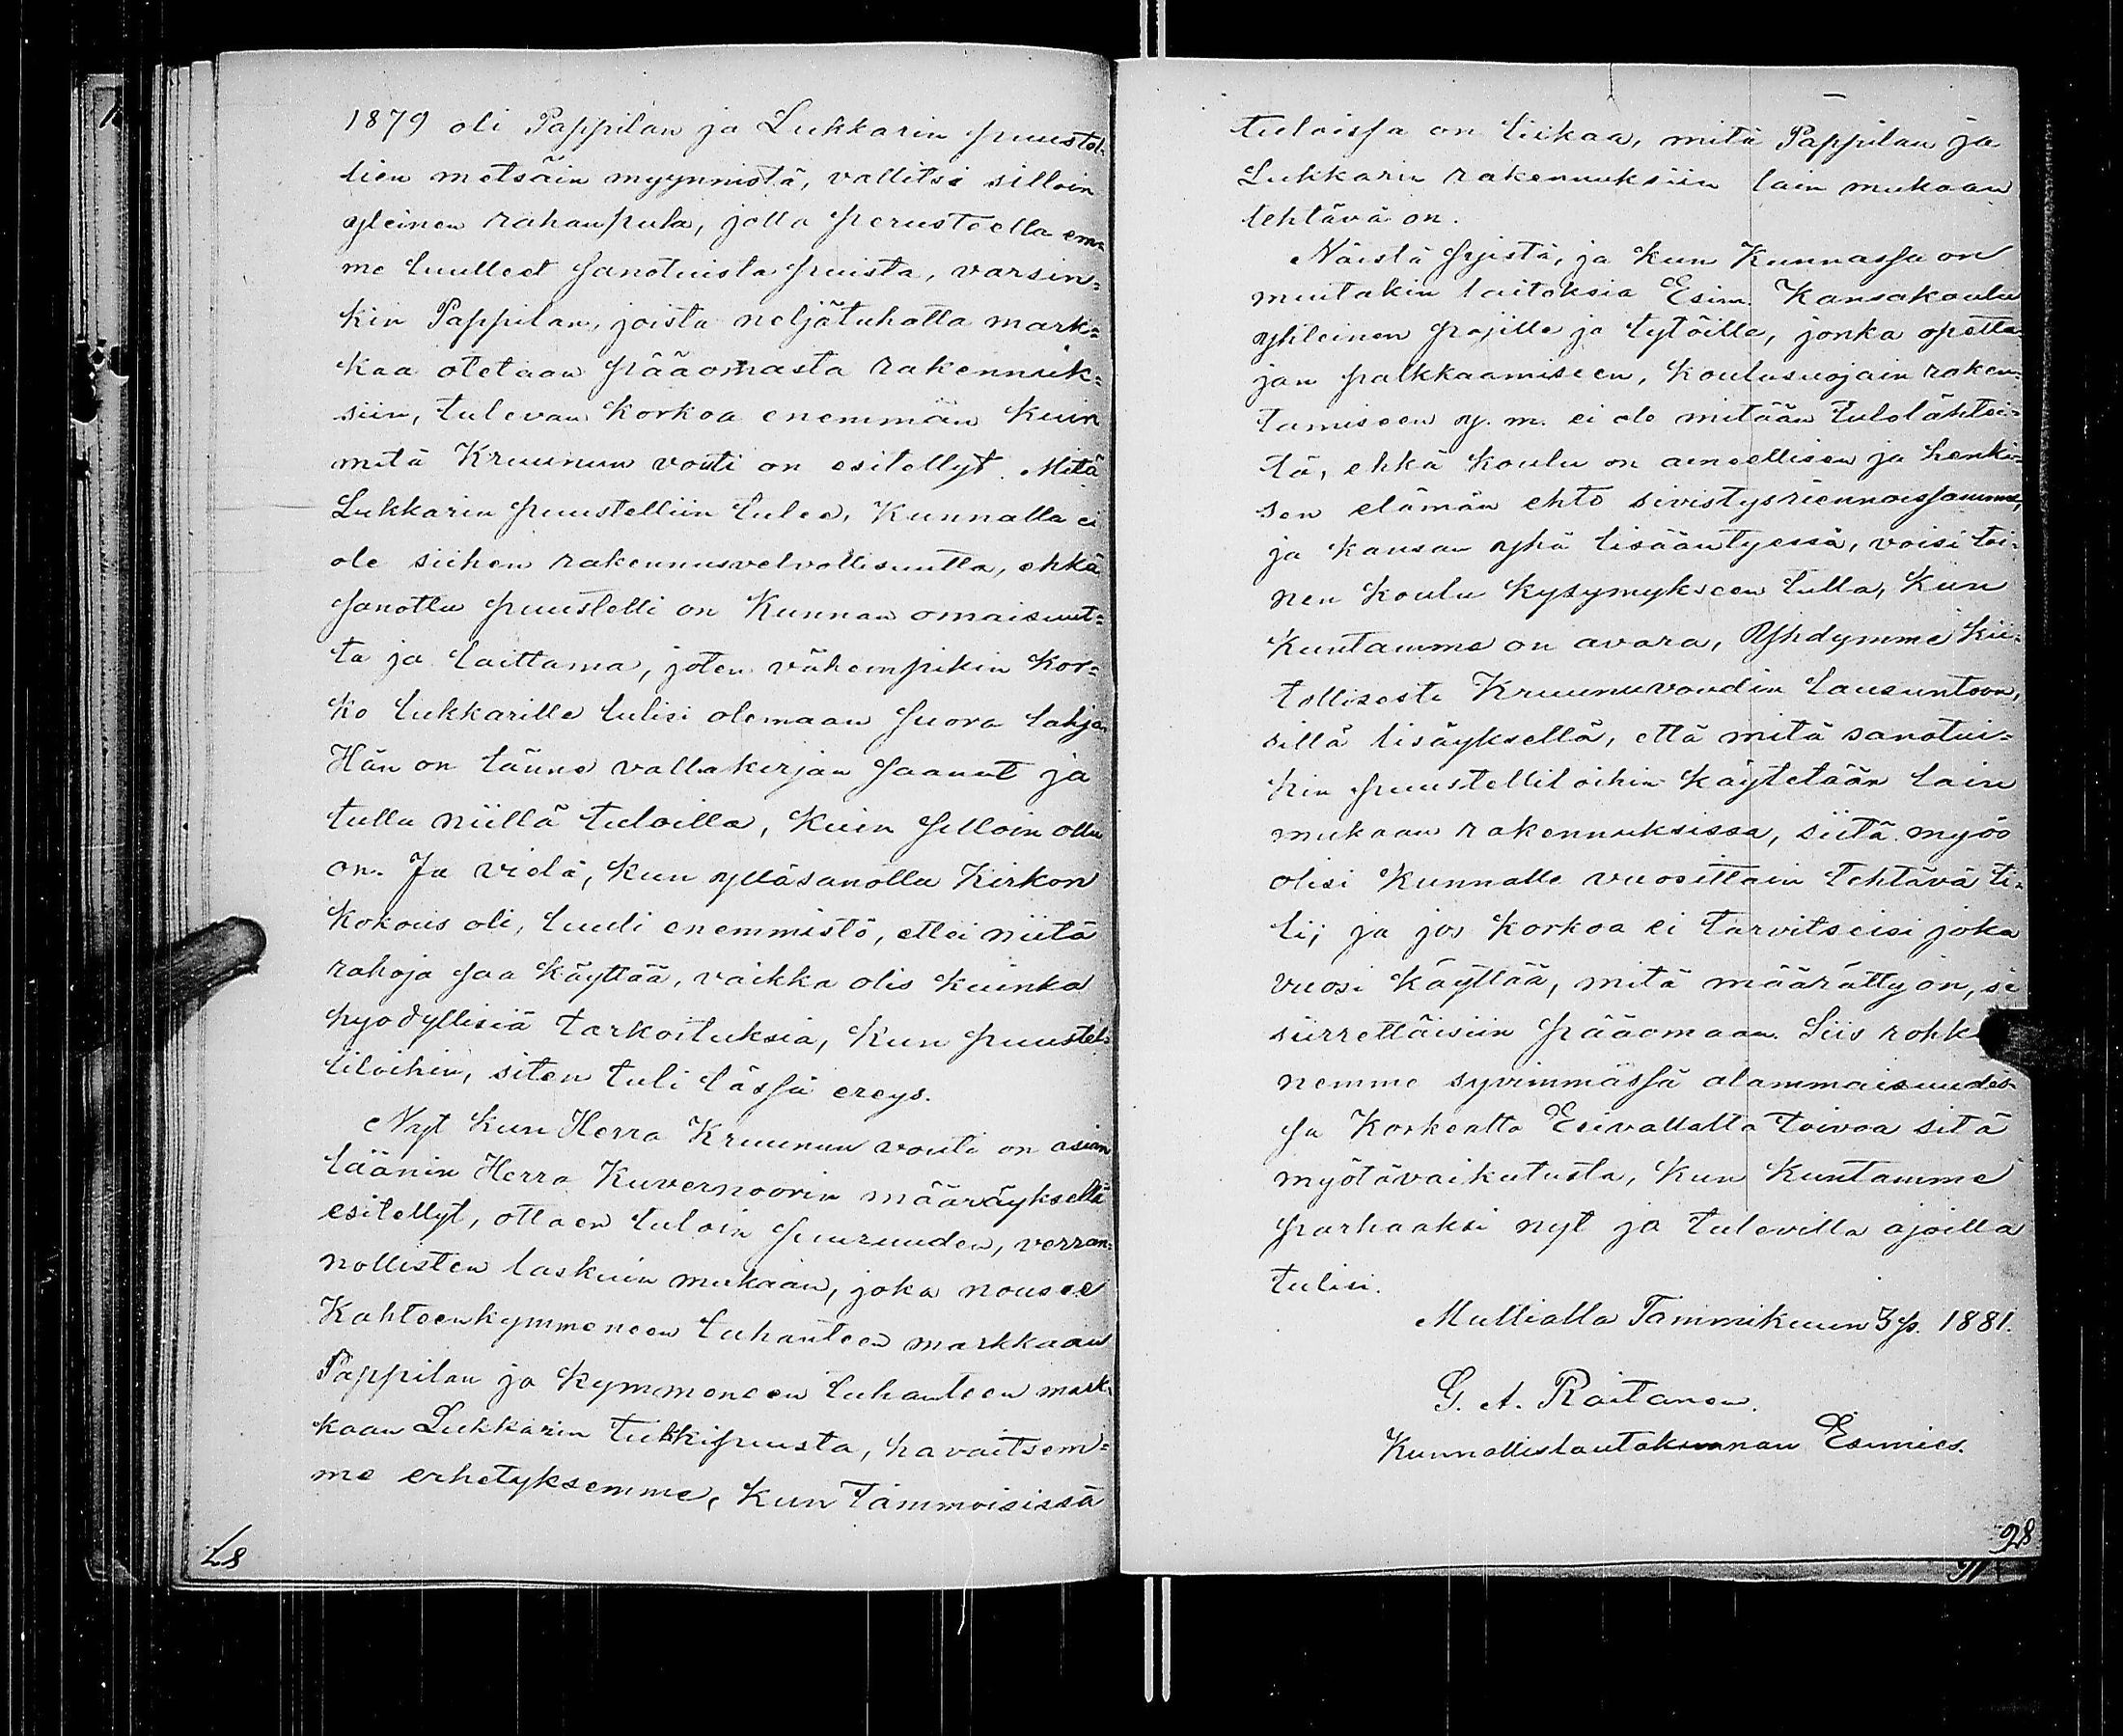 1879 oli Pappilan ja Lukkarin puustel-
lien metsäin myynnistä, vallitsi silloin
yleinen rahanpula, jolla perusteella em=
me luulleet sanotuista puista, varsin=
kin Pappilan, joista neljätuhatta mark=
kaa otetaan pääomasta rakennuk=
siin, tulevan korkoa enemmän kuin
mitä Kruunun vouti on esitellyt. Mitä
Lukkarin puustelliin tulee, Kunnalla ei
ole siihen rakennusvelvollisuutta, ehkä
sanottu puustelli on Kunnan omaisuut=
ta ja laittama, joten vähempikin kor=
ko lukkarille tulisi olemaan suora lahja.
Hän on tänne valtakirjan saanut ja
tullu niillä tuloilla, kuin silloin ollu
on. Ja vielä, kun ylläsanottu Kirkon
kokous oli, luuli enemmistö, ettei niitä
rahoja saa käyttää, vaikka olis kuinka
hyödyllisiä tarkoituksia, kun puustel=
liloihin, siten tuli tässä ereys.
Nyt kun Herra Kruunun vouti on asian
läänin Herra Kuvernöörin määräyksellä
esitellyt, ottaen tuloin suuruuden, verran=
nollisten laskuin mukaan, joka nousee
Kahteenkymmeneen tuhanteen markkaan
Pappilan ja kymmeneen tuhanteen mark=
kaan Lukkarin tukkipuusta, havaitsem=
me erhetyksemme, kun tämmöisissä
L8
tuloissa on liikaa, mitä Pappilan ja
Lukkarin rakennuksiin lain mukaan
tehtävä on.
Näistä syistä, ja kun Kunnassa on
muitakin laitoksia Esim. Kansakoulu
yhteinen pojille ja tytöille, jonka opetta=
jan palkkaamiseen, koulusuojain raken=
tamiseen y. m. ei ole mitään tulolähtei=
tä, ehkä koulu on aineellisen ja henki=
sen elämän ehto sivistysriennoissamme,
ja kansan yhä lisääntyessä, voisi toi=
nen koulu kysymykseen tulla, kun
kuntamme on avara, Yhdymme kii=
tollisesti Kruununvoudin lausuntoon,
sillä lisäyksellä, että mitä sanotui=
hin puustelliloihin käytetään lain
mukaan rakennuksissa, siitä myös
olisi kunnalle vuosittain tehtävä ti=
li; ja jos korkoa ei tarvitseisi joka
vuosi käyttää, mitä määrätty on, se
siirrettäisiin pääomaan. Siis rohke
nemme syvimmässä alammaisuudes=
sa Korkealta Esivallalta toivoa sitä
myötävaikutusta, kun kuntamme
parhaaksi nyt ja tulevilla ajoilla
tulisi.
Mullialla Tammikuun 3 p. 1881.
G. A. Raitanen.
Kunnallislautakunnan Esimies.
98
91